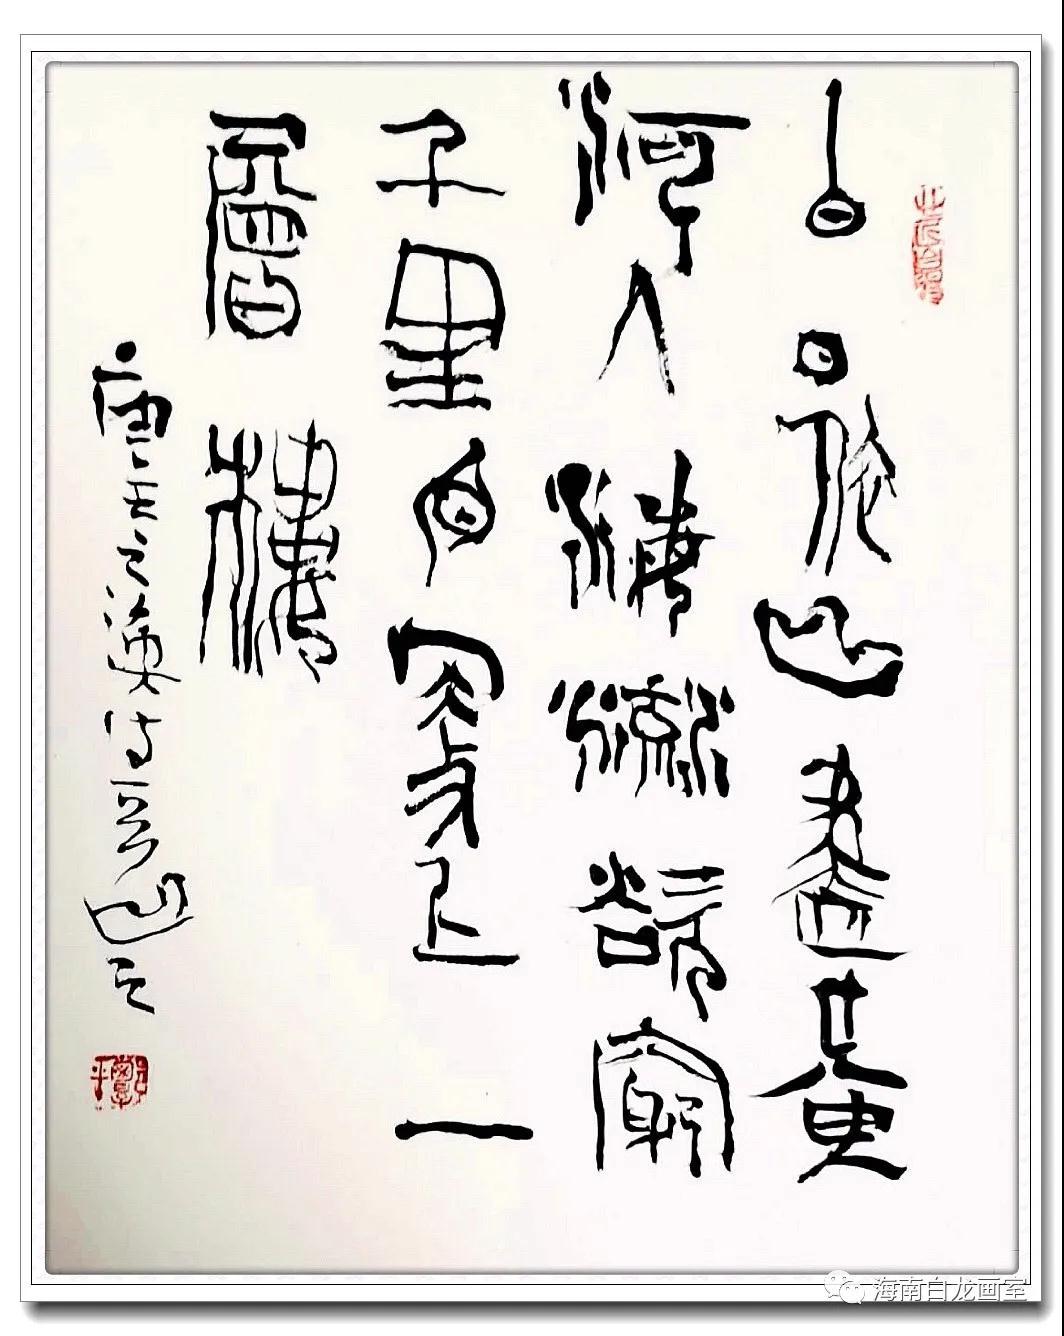 白日依山盡黃
河入海流欲窮
千里目更上一
層樓
唐王之渙詩
海南白龙画室